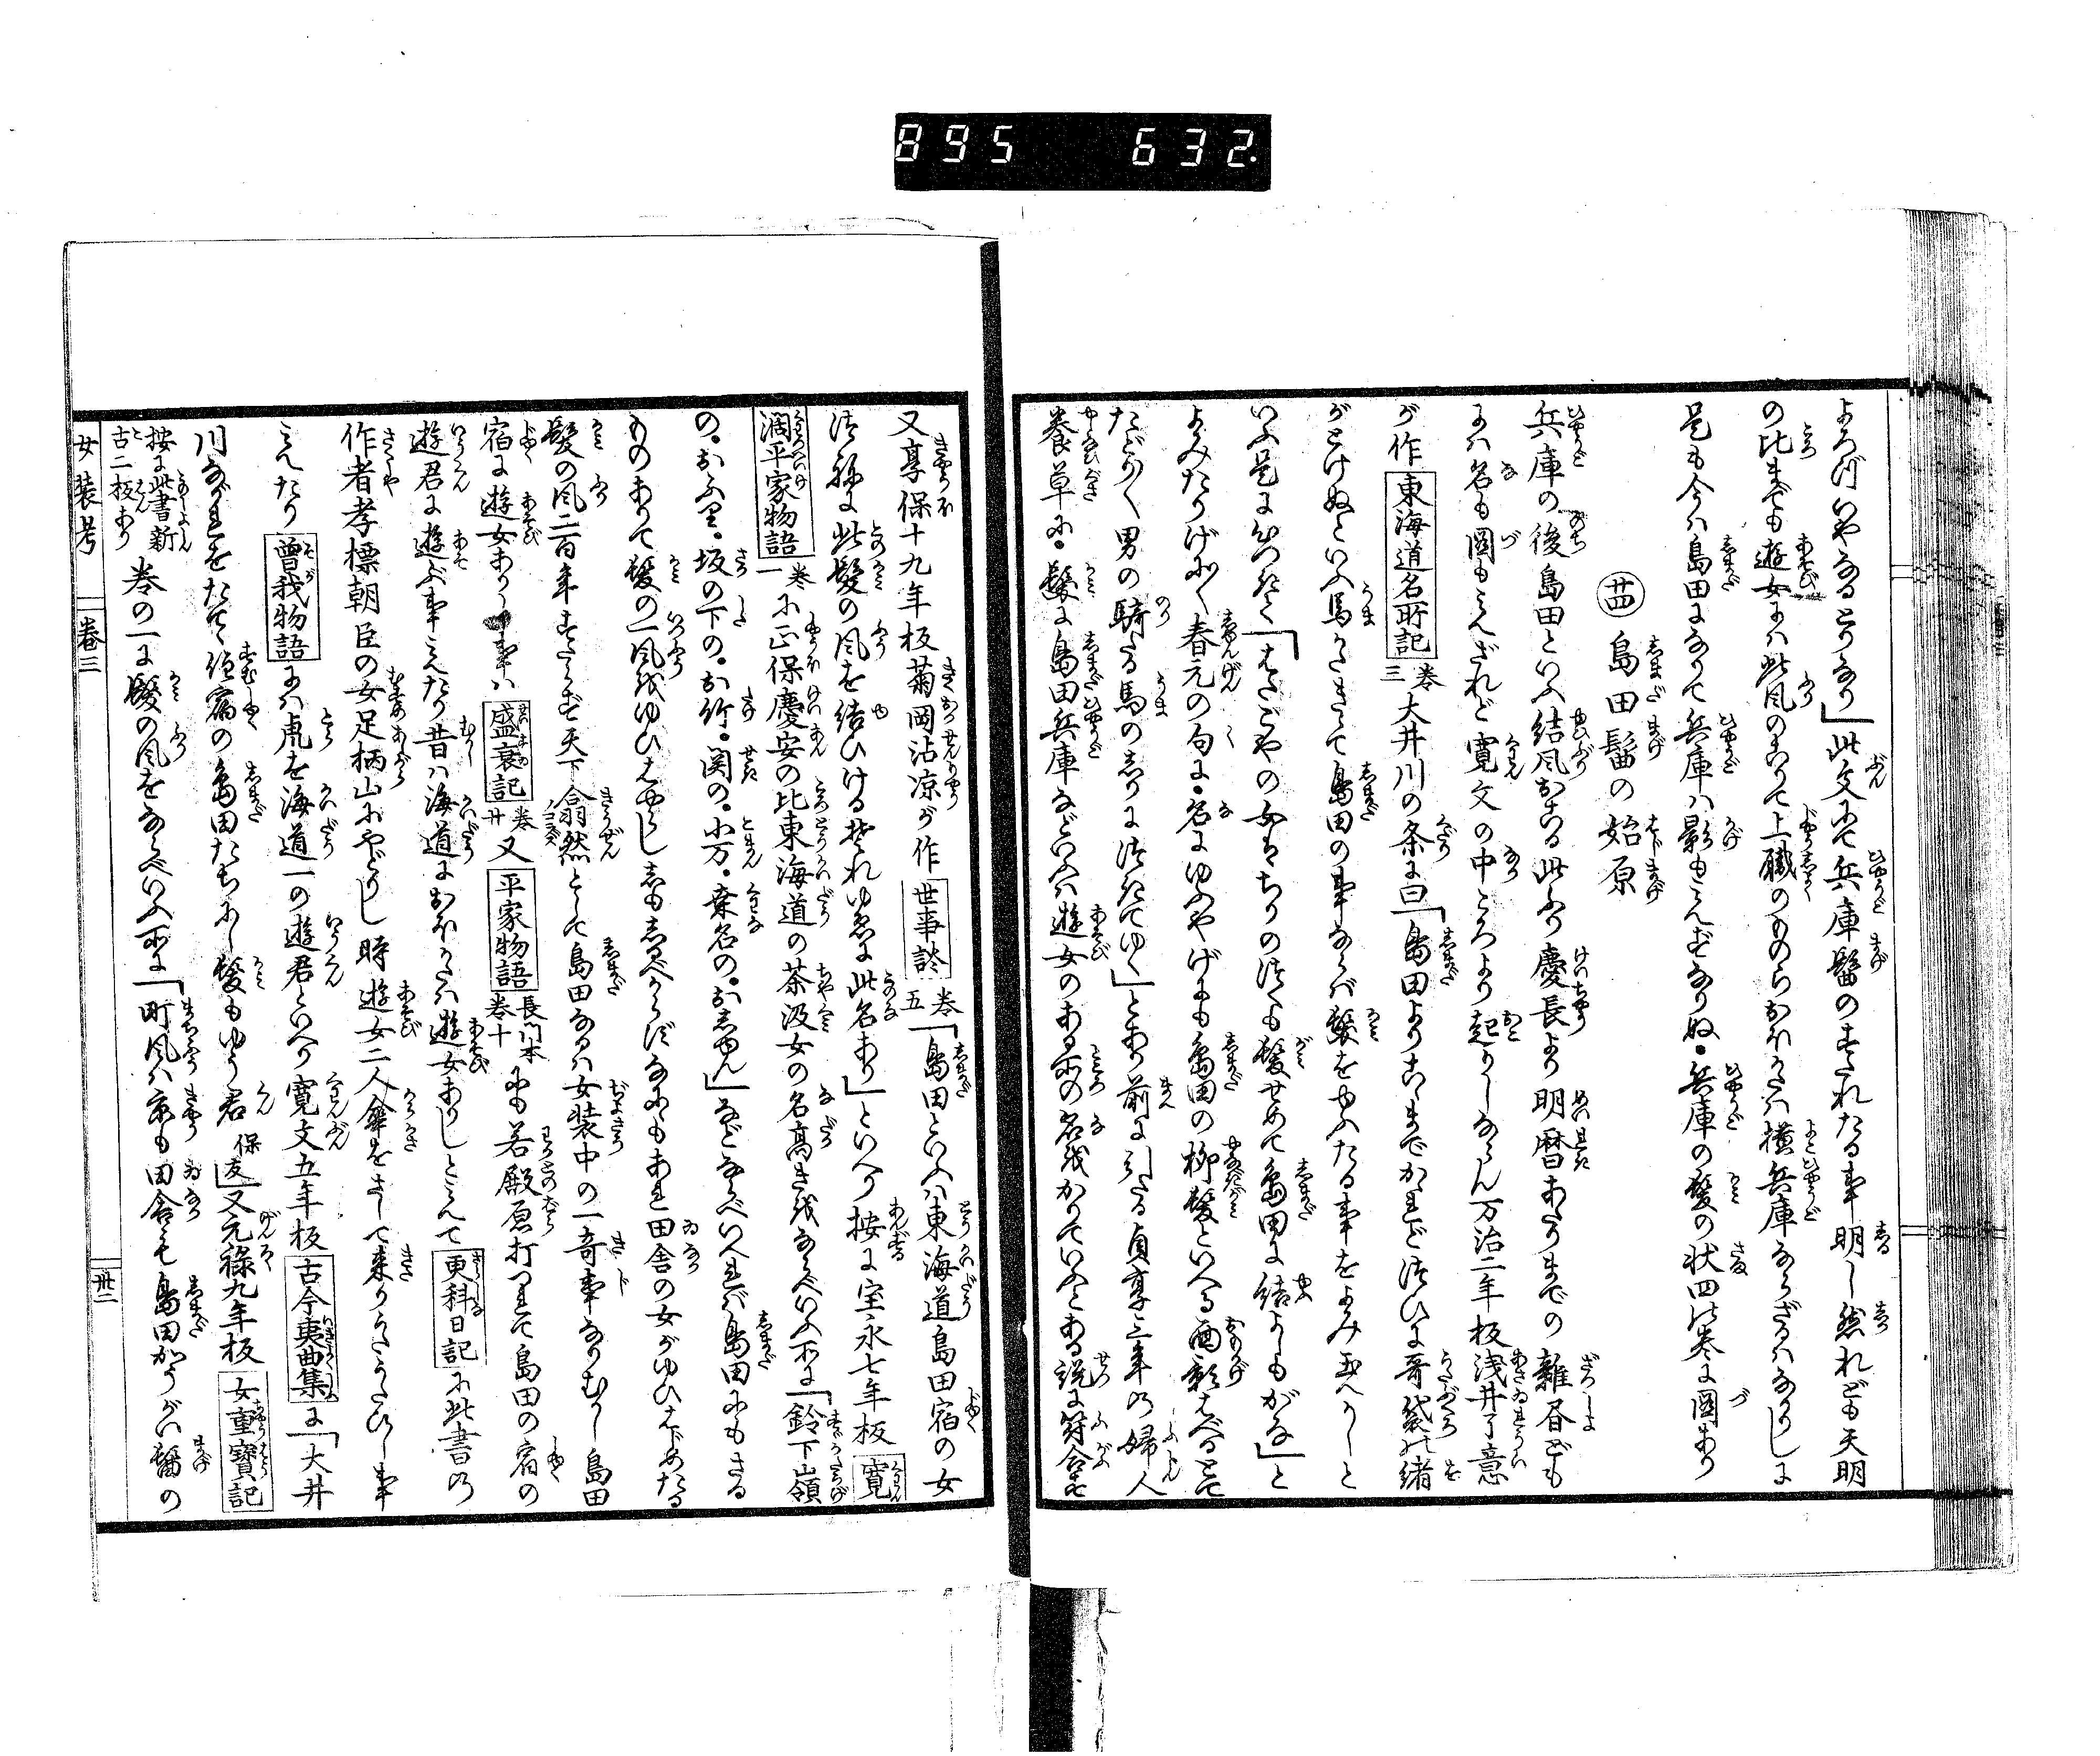 895 632.
よろづいやなるとりなり」此文にて兵庫髷のすたれたる事明し然れども天明
の比までも遊女には此風のこりて上職のものらおほかたは横兵庫ならざるはなかりしに
是も今は島田になりて兵庫は影もみえずなりぬ・兵庫の髪の状四の巻に図あり
廿四 島田髷の始原
兵庫の後島田といふ結風おこる此ふり慶長より明暦あたりまでの雑書ども
には名も図もみえざれど寛文の中ころより起りしならん万治二年板浅井了意
が作 東海道名所記 巻三 大井川の条に曰「島田よりこまでかれどつひに哥袋の緒
がとけぬといへ馬かたきて島田の事ならば髪をゆふたる事をよみ玉へかしと
いふ是につけて「はたごやの女はちりのつくも髪せめて島田に結よしもがな」と
よみたりげにく春元の句に・名にゆふやげにも島田の柳髪といへる面影はべるとて
たどかく男の騎たる馬のしりにつきてゆく」とあり前に引たる貞享三年の婦人
養草に・髪に島田兵庫などいへるは遊女のある所の名をかりていふとある説に符合せ
又享保十九年板菊岡沾凉が作 世事談 巻五 「島田といふは東海道島田宿の女
つねに此髪の風を結ひけるそれゆゑに此名あり」といへり按に宝永七年板 寛
濶平家物語 巻一 に正保慶安の比東海道の茶汲女の名高きをならべいふ所に「鈴下山嶺
の・おふり・坂の下の・お竹・関の・小万・桑名の・おしゆん」などならべいへれば島田にもさる
ものありて髪の一風をゆひはやらししもしるべからずなにもあれ田舎の女がゆひはじめたる
髪の風二百年すたらず天下翕然として島田なるは女装中の一奇事なりむかし島田
宿に遊女ありし事は 盛衰記 巻廿 又 平家物語 長門本巻十 にも若殿原打つれて島田の宿の
遊君に遊ぶ事みえたり昔は海道におほかたは遊女ありしとみえて 更科日記 に此書の
作者孝標朝臣の女足柄山にやどりし時遊女二人傘をさして来りうたうたひし事
みえたり 曽我物語 には虎を海道一の遊君といへり寛文五年板 古今夷曲集 に「大井
川ながれをたてゝ住宿の島田たちにし髪もゆう君 保友」又元禄九年板 女重宝記
按に此書新古二板あり 巻の一に髪の風をならべいふ所に「町風は京も田舎も島田かうがい髷の
女装考 巻三 卅二